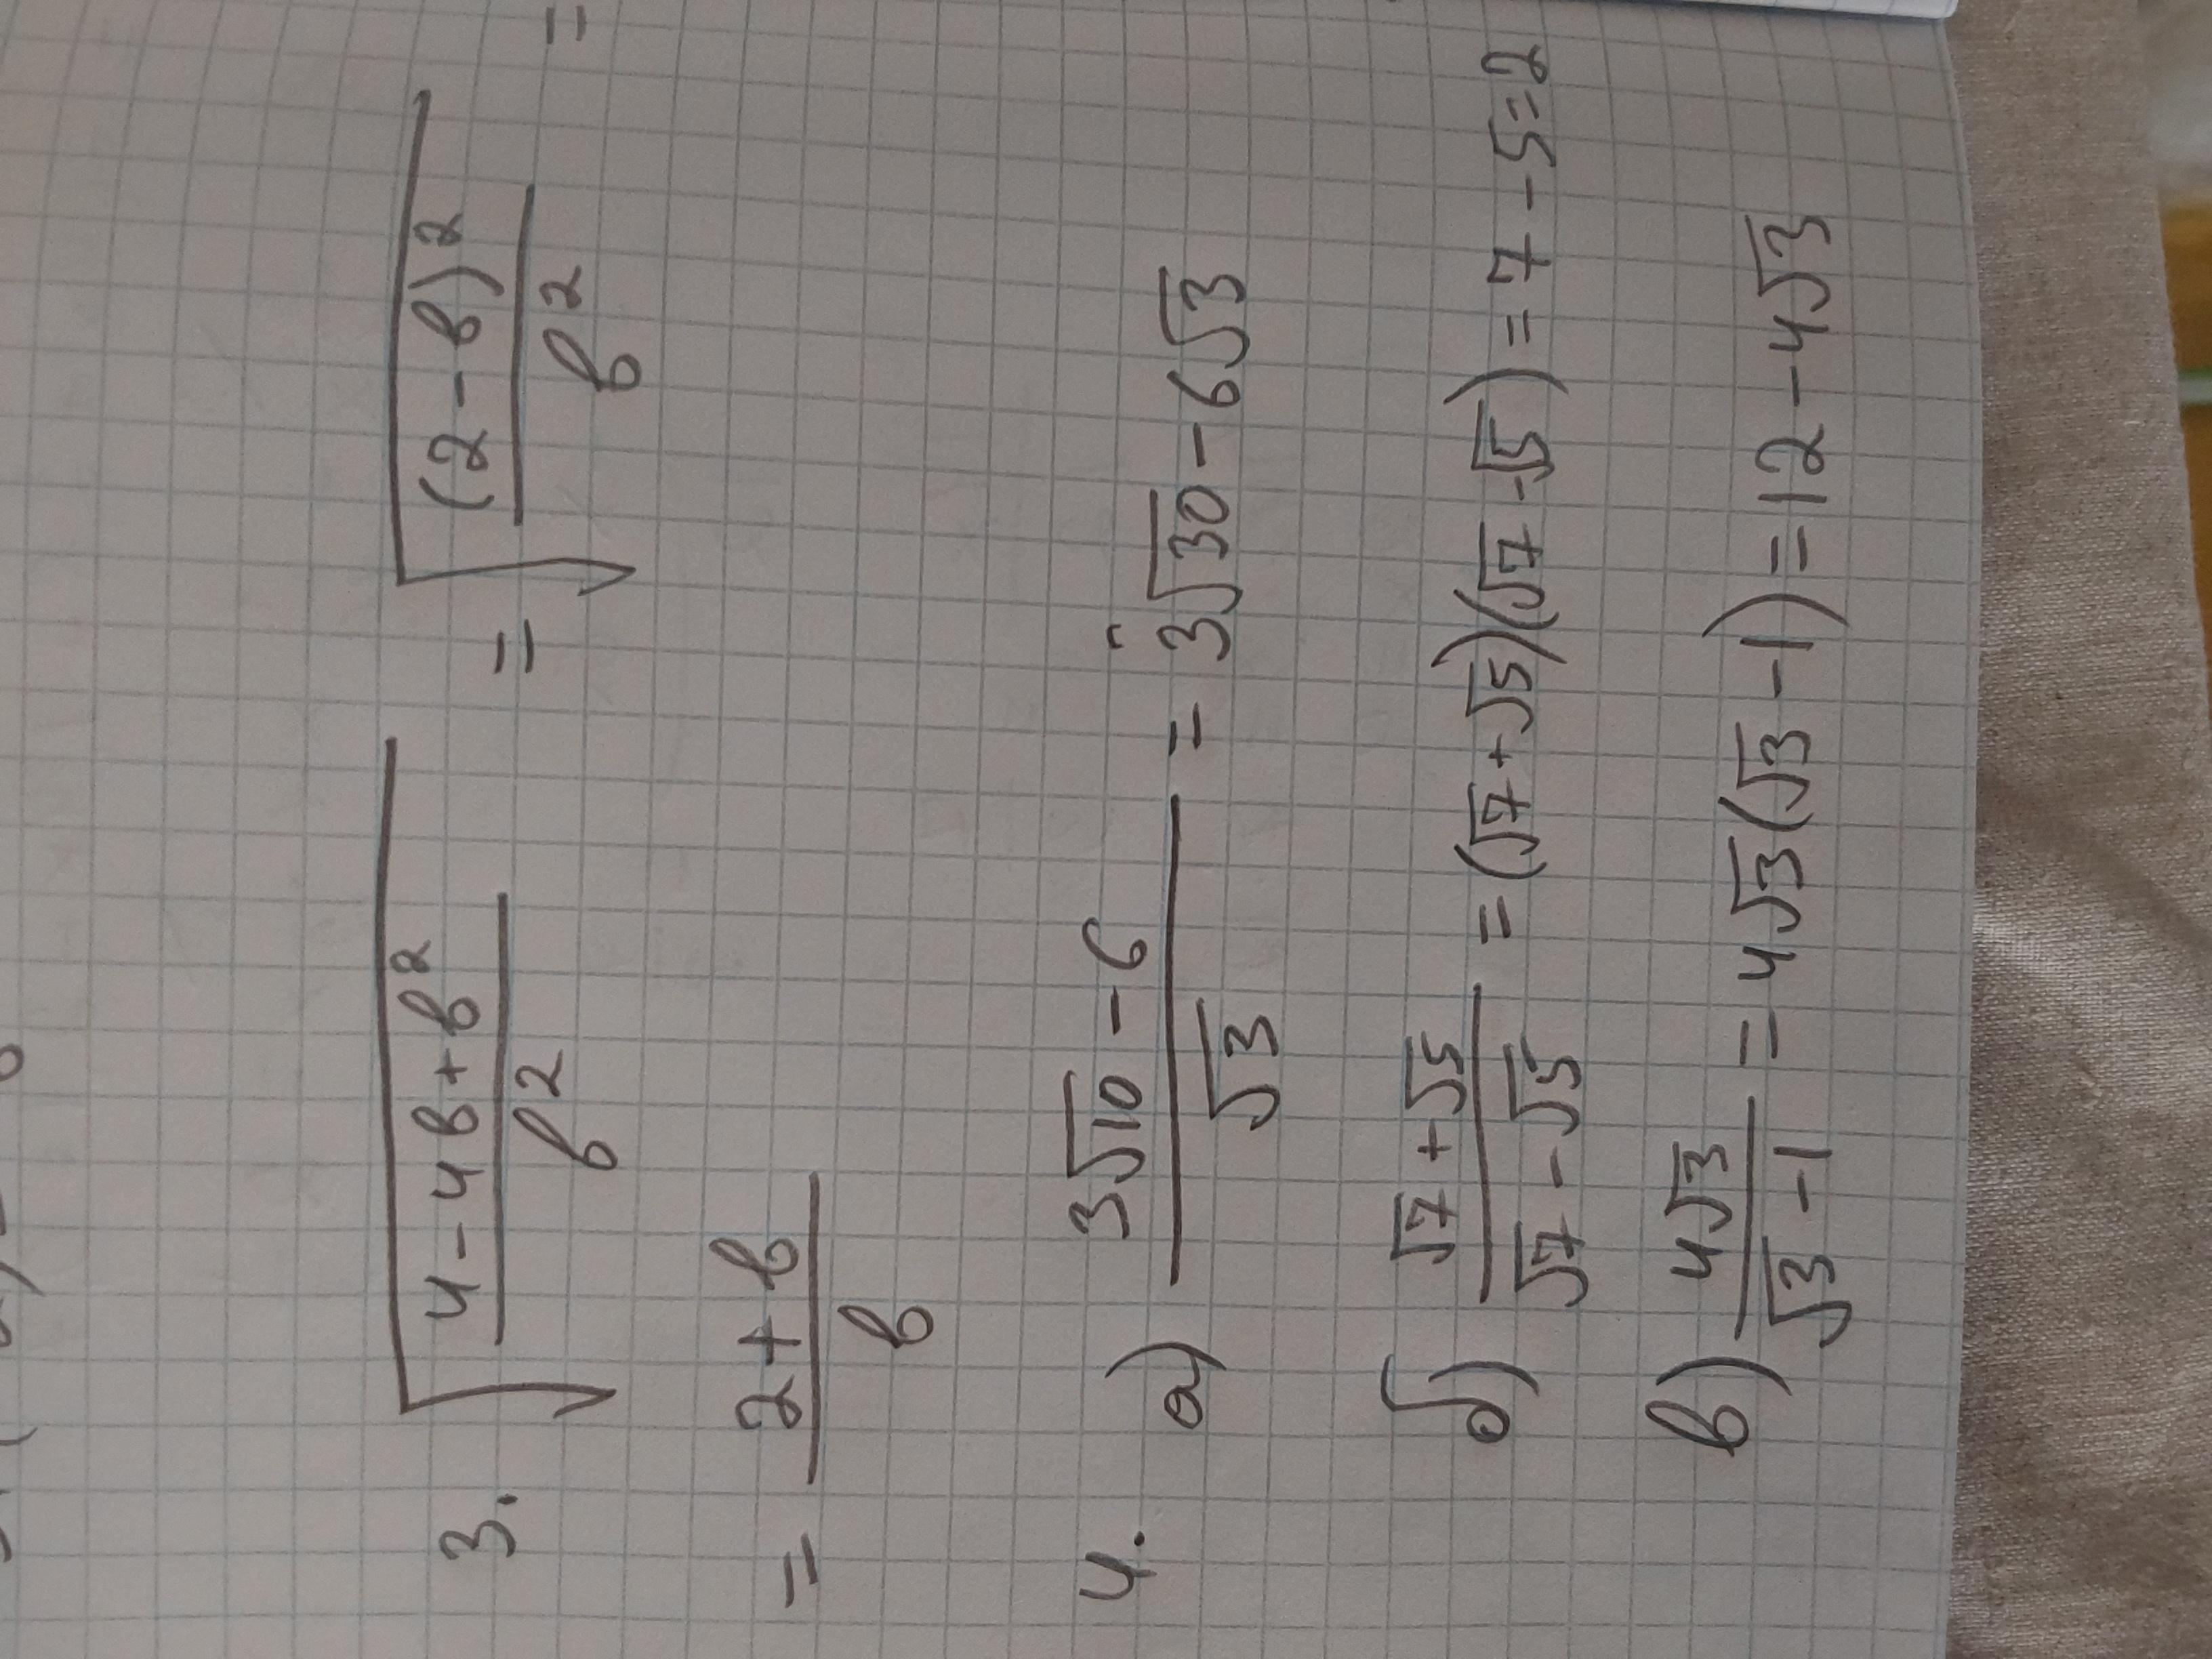 3. √((4-4в+в²)/в²) = √((2-в)²/в²) =
= (2+в)/в
4. а) (3√10-6)/√3 = 3√30-6√3
б) (√7+√5)/(√7-√5) = (√7+√5)(√7-√5) = 7-5=2
в) 4√3/(√3-1) = 4√3(√3-1) = 12-4√3